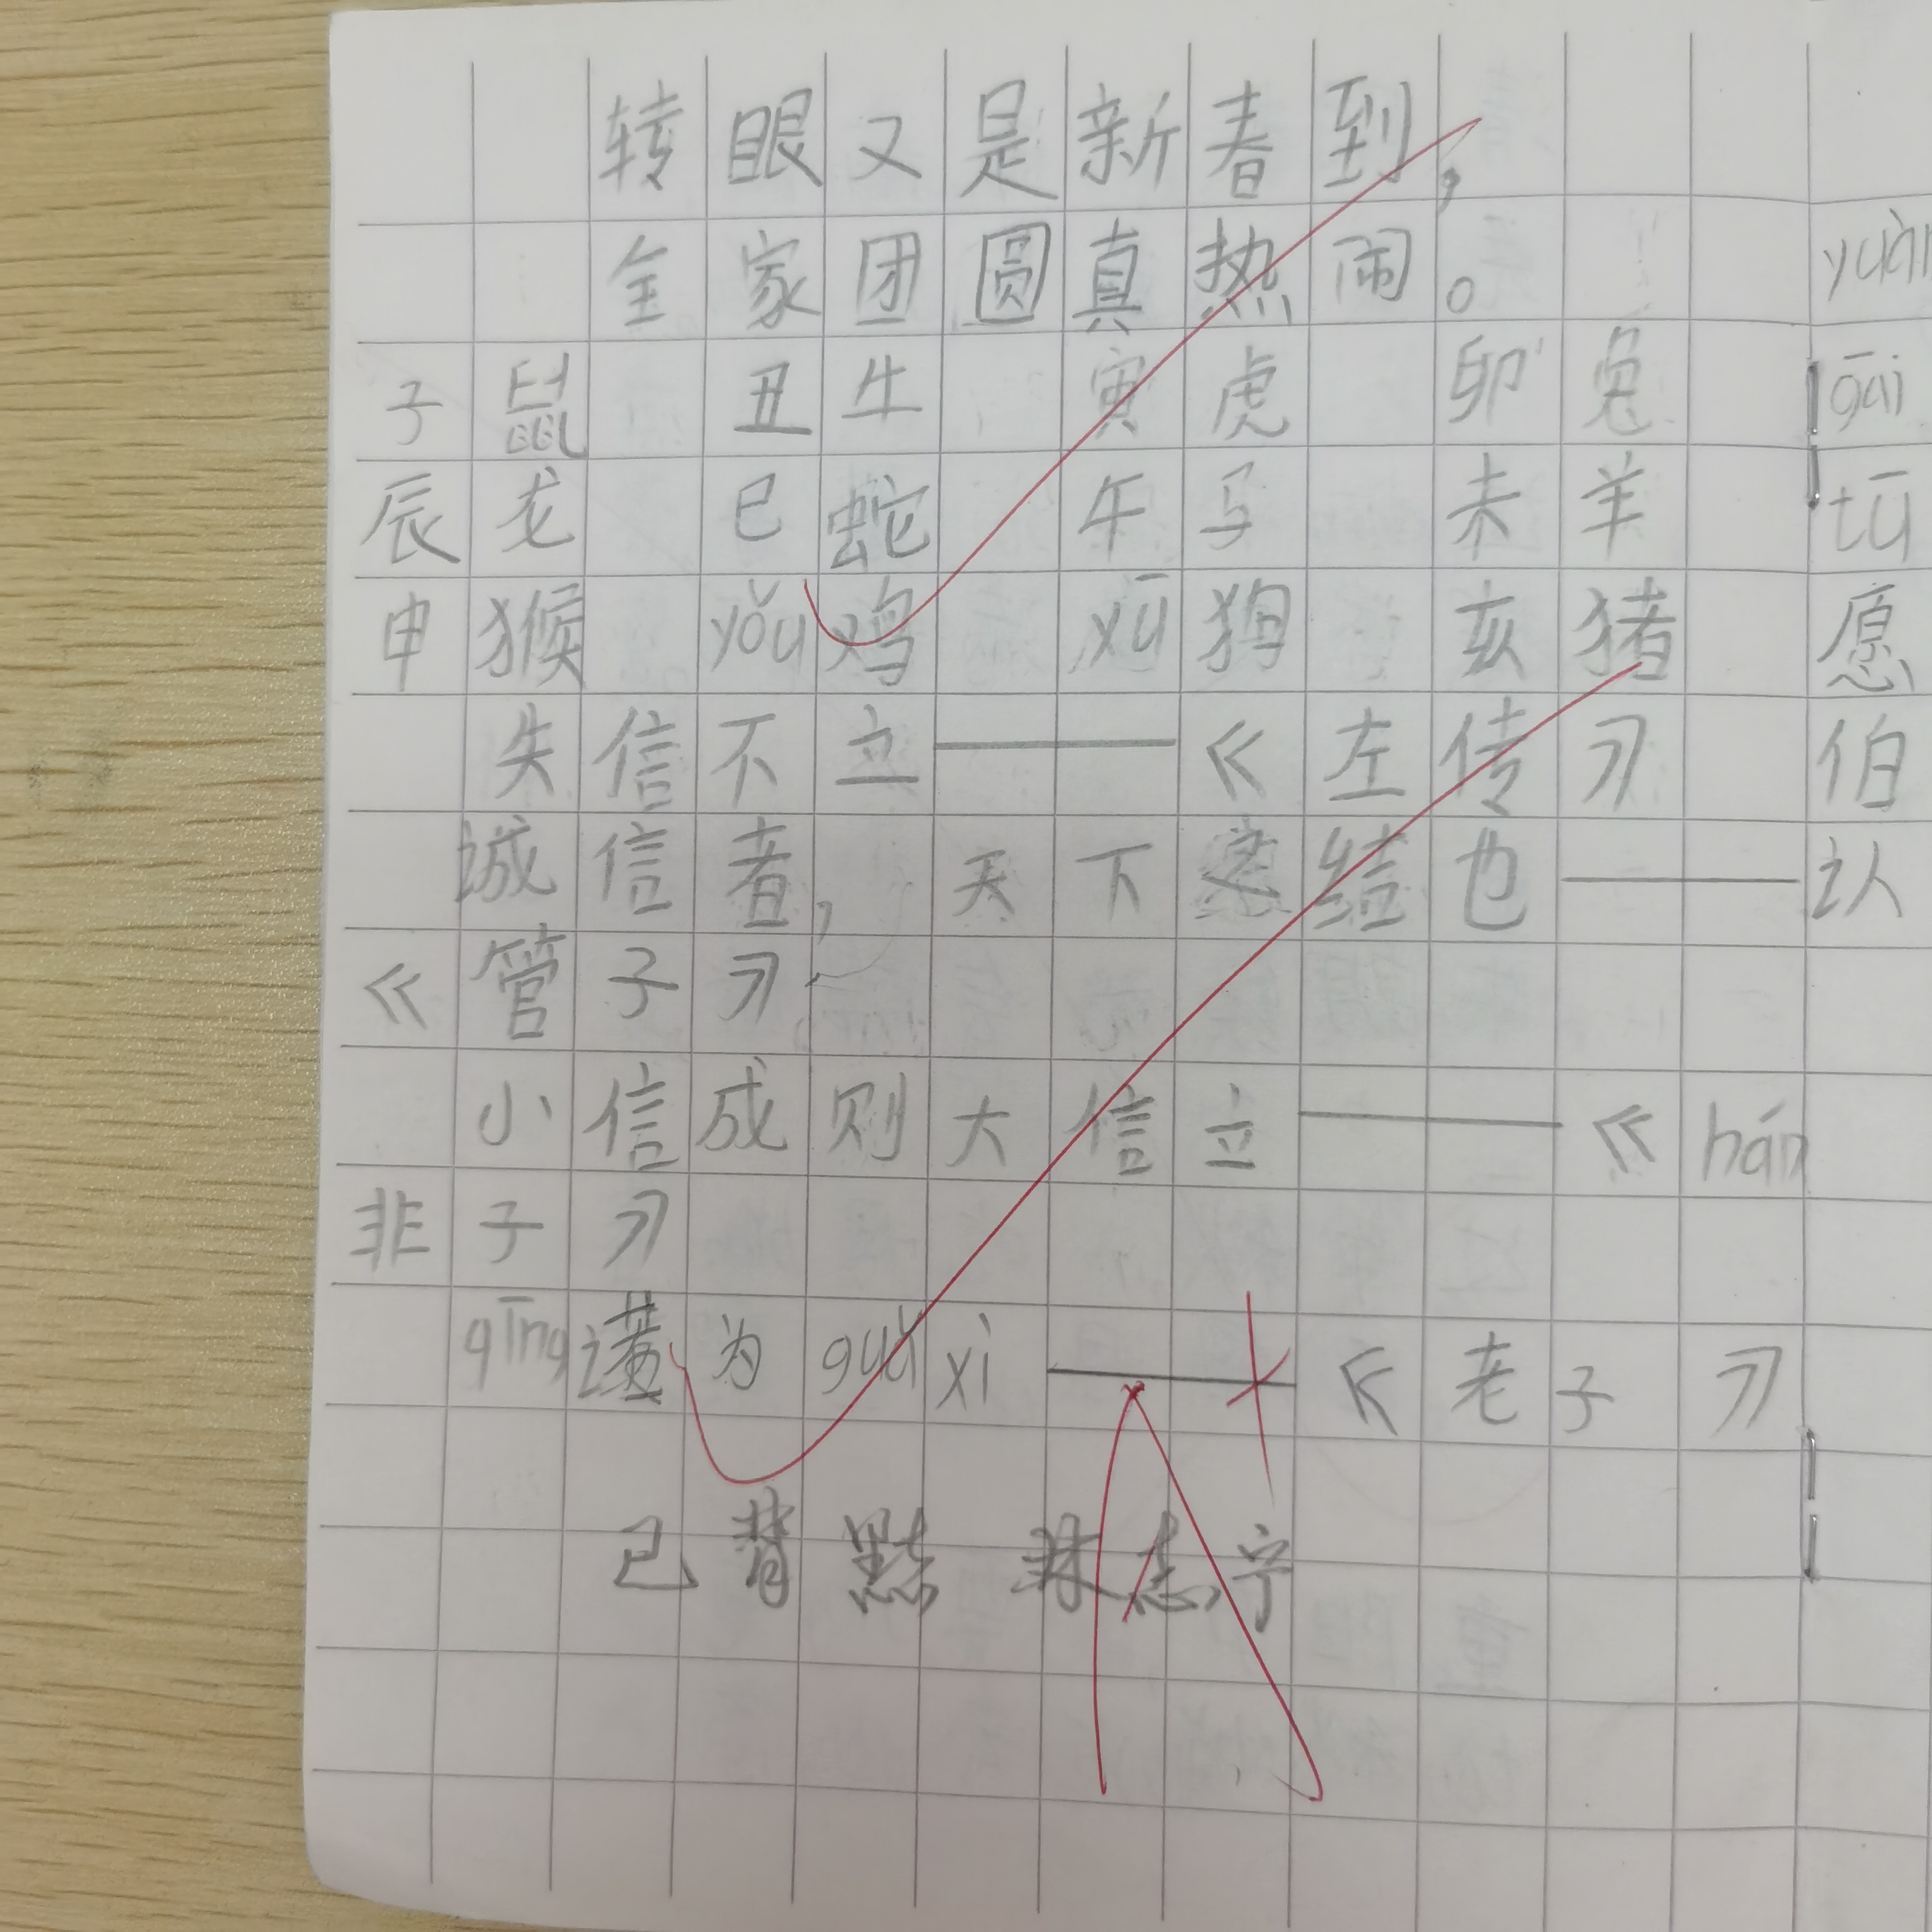 转眼又是新春到，
全家团圆真热闹。
子鼠 丑牛 寅虎 卯兔
辰龙 巳蛇 午马 未羊
申猴 yǒu鸡 xū狗 亥猪
失信不立——《左传》
诚信者，天下之结也——
《管子》
小信成则大信立——《hán
非子》
qīng诺为guǎ xì——《老子》
已背默 林志宁
A+
yuàn
gāi
tū
愿
伯
认